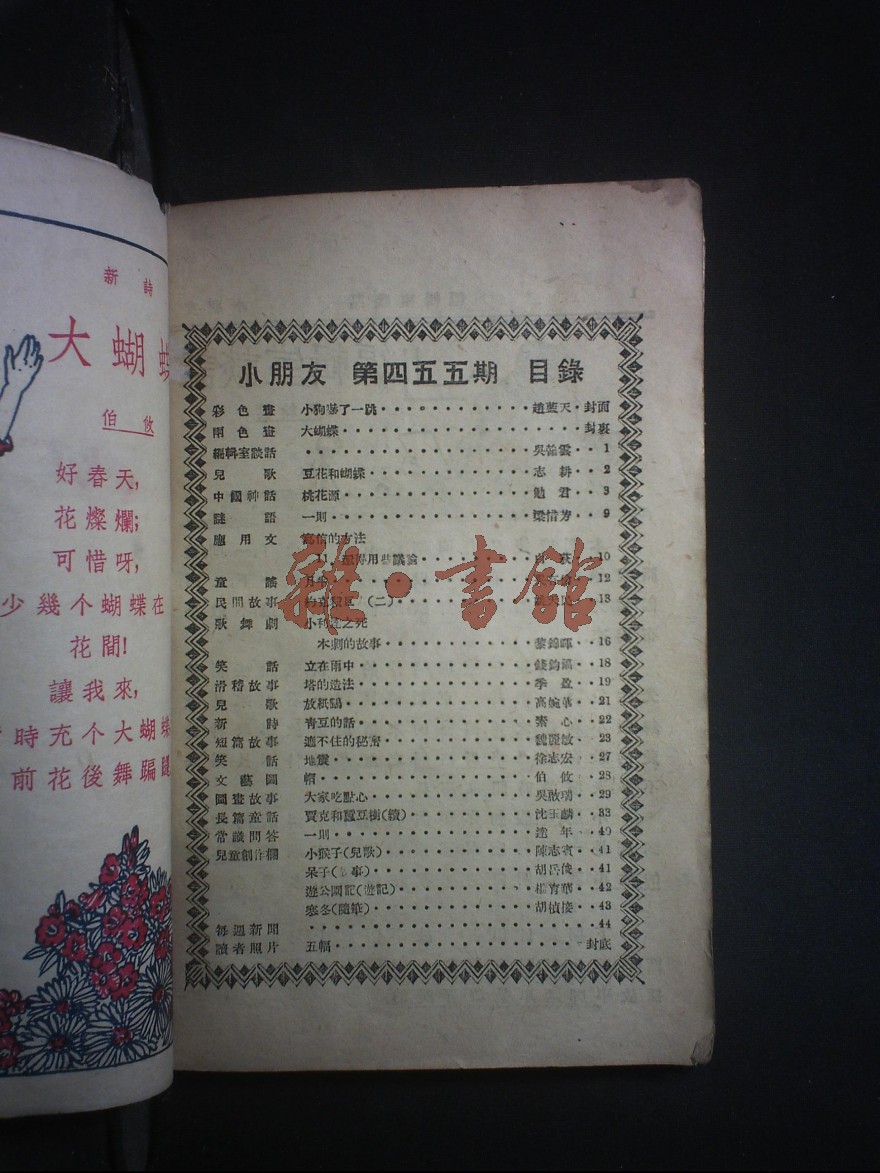 新詩
大蝴
伯攸
好春天,
花燦爛;
可惜呀,
少幾个蝴蝶在
花間!
讓我來,
時充个大蝴蝶
前花後舞蹁
小朋友 第四五五期 目錄
彩色畫 小狗嚇了一跳 趙藍天 封面
兩色畫 大蝴蝶 封裏
編輯室談話 吳翰雲 1
兒歌 豆花和蝴蝶 志耕 2
中國神話 桃花源 勉君 3
謎語 一則 梁惜芳 9
應用文 寫信的方法
11. 用些議論 10
童謠 月 12
民間故事 (二) 13
歌舞劇 小利達之死
本劇的故事 黎錦暉 16
笑話 立在雨中 錢鈞 18
滑稽故事 塔的造法 季盈 19
兒歌 放紙鷂 高婉華 21
新詩 青豆的話 素心 22
短篇故事 遮不住的秘密 魏麗敏 23
笑話 地震 徐志宏 27
文藝圖 帽 伯攸 28
圖畫故事 大家吃點心 吳啟瑞 29
長篇童話 賈克和蠶豆樹(續) 沈玉麟 33
常識問答 一則 達年 40
兒童創作欄 小猴子(兒歌) 陳志賓 41
呆子(事) 胡岳俊 41
遊公園記(遊記) 楊育華 42
寒冬(隨筆) 胡楨接 43
每週新聞 44
讀者照片 五幅 封底
雜·書館